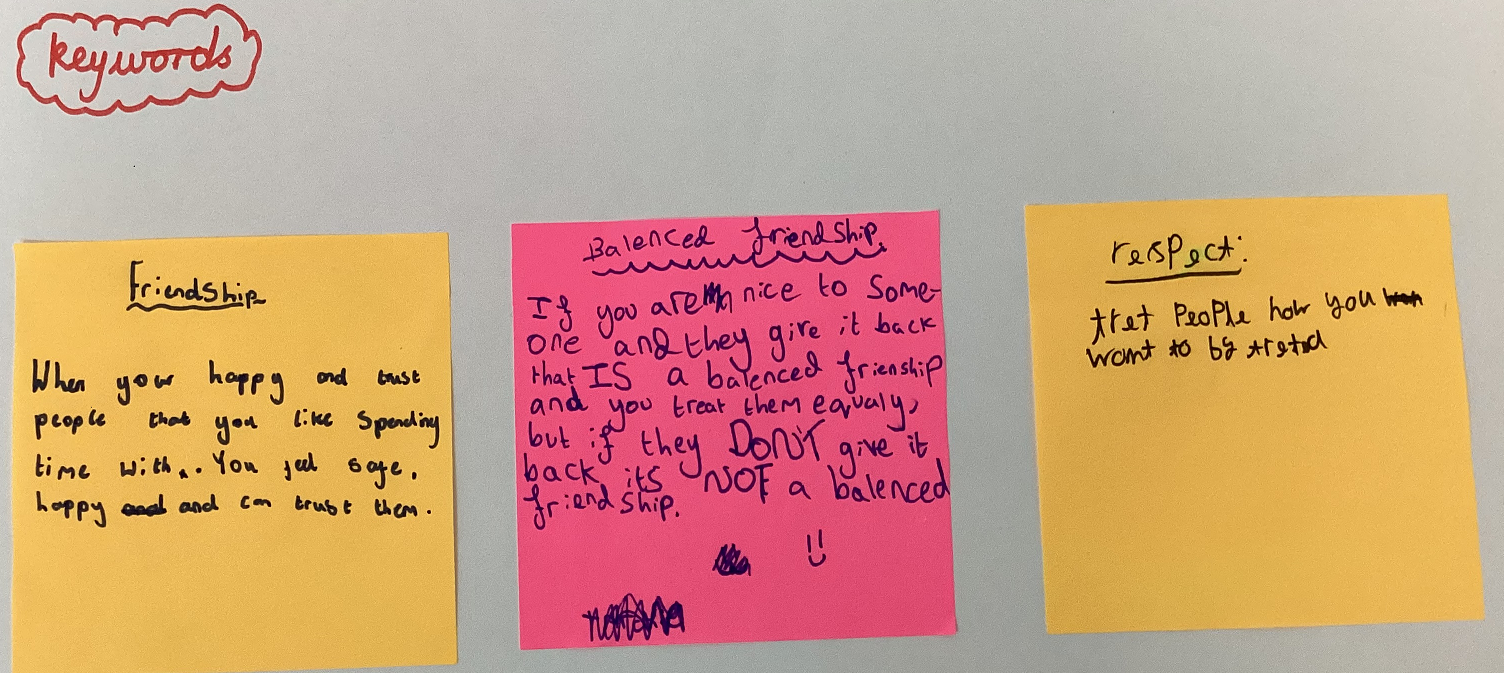 keywords
Friendship
When your happy and trust
people that you like spending
time with. You feel safe,
happy and can trust them.
Balenced friendship.
If you are nice to some-
one and they give it back
that IS a balenced frienship
and you treat them equaly,
but if they DON'T give it
back its NOT a balenced
friendship.
respect:
tret people how you
want to be treted